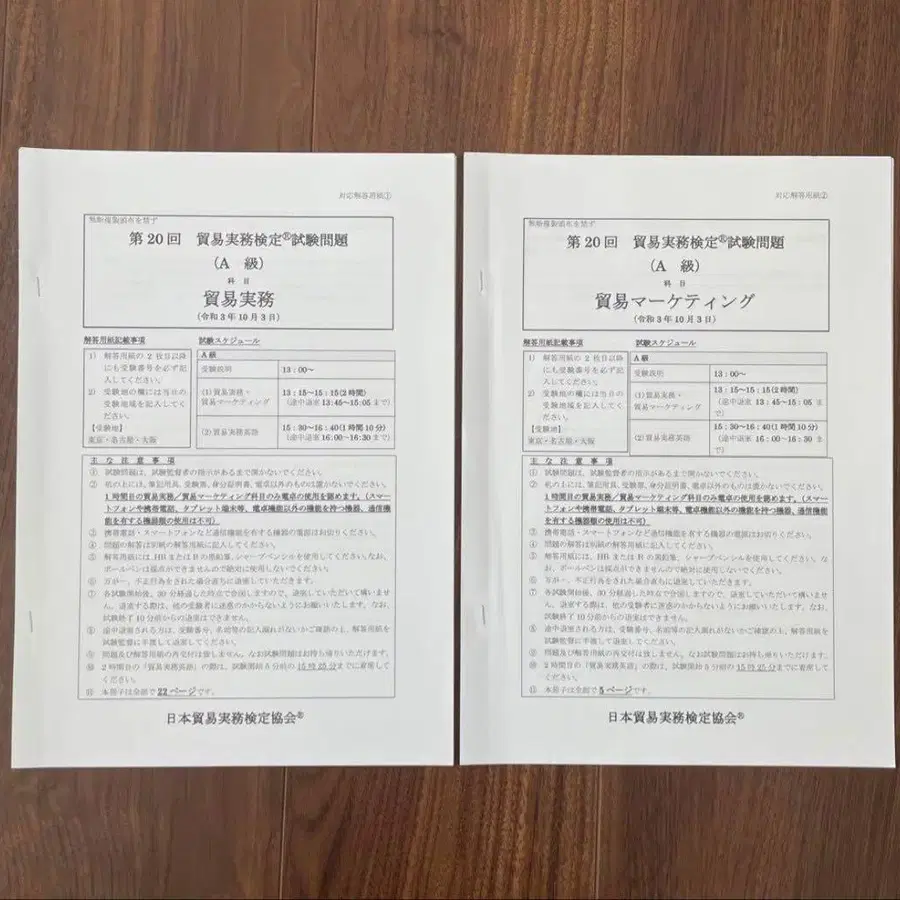 対応解答用紙①
無断複製頒布を禁ず
第20回 貿易実務検定®試験問題
(A 級)
科 目
貿易実務
(令和3年10月3日)
解答用紙記載事項
1) 解答用紙の2枚目以降
にも受験番号を必ず記
入してください。
2) 受験地の欄には当日の
受験地域を記入してく
ださい。
【受験地】
東京・名古屋・大阪
試験スケジュール
A 級
受験説明 13:00～
(1)貿易実務・
貿易マーケティング
13:15～15:15(2時間)
(途中退室 13:45～15:05 まで)
(2) 貿易実務英語
15:30～16:40(1時間10分)
(途中退室 16:00～16:30 まで)
主 な 注 意 事 項
① 試験問題は、試験監督者の指示があるまで開かないでください。
② 机の上には、筆記用具、受験票、身分証明書、電卓以外のものは置かないでください。
1時間目の貿易実務/貿易マーケティング科目のみ電卓の使用を認めます。(スマー
トフォンや携帯電話、タブレット端末等、電卓機能以外の機能を持つ機器、通信機
能を有する機器類の使用は不可)
③ 携帯電話・スマートフォンなど通信機能を有する機器の電源はお切りください。
④ 問題の解答は別紙の解答用紙に記入してください。
⑤ 解答用紙には、HBまたはBの黒鉛筆、シャープペンシルを使用してください。なお、
ボールペンは採点ができませんので絶対に使用しないでください。
⑥ 万が一、不正行為をされた場合直ちに退室していただきます。
⑦ 各試験開始後、30分経過した時点で合図しますので、退室していただいて構いませ
ん。退室する際は、他の受験者に迷惑のかからないようにお願いいたします。なお、
試験終了10分前からの退室はできません。
⑧ 途中退室される方は、受験番号、名前等の記入漏れがないかご確認の上、解答用紙を
試験監督に手渡して退室してください。
⑨ 問題及び解答用紙の再交付は致しません。なお試験問題はお持ち帰りいただけます。
⑩ 2時間目の「貿易実務英語」の際は、試験開始5分前の15時25分までに着席して
ください。
⑪ 本冊子は全部で22ページです。
日本貿易実務検定協会®
対応解答用紙②
無断複製頒布を禁ず
第20回 貿易実務検定®試験問題
(A 級)
科 目
貿易マーケティング
(令和3年10月3日)
解答用紙記載事項
1) 解答用紙の2枚目以降
にも受験番号を必ず記
入してください。
2) 受験地の欄には当日の
受験地域を記入してく
ださい。
【受験地】
東京・名古屋・大阪
試験スケジュール
A 級
受験説明 13:00～
(1)貿易実務・
貿易マーケティング
13:15～15:15(2時間)
(途中退室 13:45～15:05 まで)
(2) 貿易実務英語
15:30～16:40(1時間10分)
(途中退室 16:00～16:30 ま
で)
主 な 注 意 事 項
① 試験問題は、試験監督者の指示があるまで開かないでください。
② 机の上には、筆記用具、受験票、身分証明書、電卓以外のものは置かないでください。
1時間目の貿易実務/貿易マーケティング科目のみ電卓の使用を認めます。(スマー
トフォンや携帯電話、タブレット端末等、電卓機能以外の機能を持つ機器、通信機能
を有する機器類の使用は不可)
③ 携帯電話・スマートフォンなど通信機能を有する機器の電源はお切りください。
④ 問題の解答は別紙の解答用紙に記入してください。
⑤ 解答用紙には、HBまたはBの黒鉛筆、シャープペンシルを使用してください。な
お、ボールペンは採点ができませんので絶対に使用しないでください。
⑥ 万が一、不正行為をされた場合直ちに退室していただきます。
⑦ 各試験開始後、30分経過した時点で合図しますので、退室していただいて構いませ
ん。退室する際は、他の受験者に迷惑のかからないようにお願いいたします。なお、
試験終了10分前からの退室はできません。
⑧ 途中退室される方は、受験番号、名前等の記入漏れがないかご確認の上、解答用紙を
試験監督に手渡して退室してください。
⑨ 問題及び解答用紙の再交付は致しません。なお試験問題はお持ち帰りいただけます。
⑩ 2時間目の「貿易実務英語」の際は、試験開始5分前の15時25分までに着席して
ください。
⑪ 本冊子は全部で5ページです。
日本貿易実務検定協会®